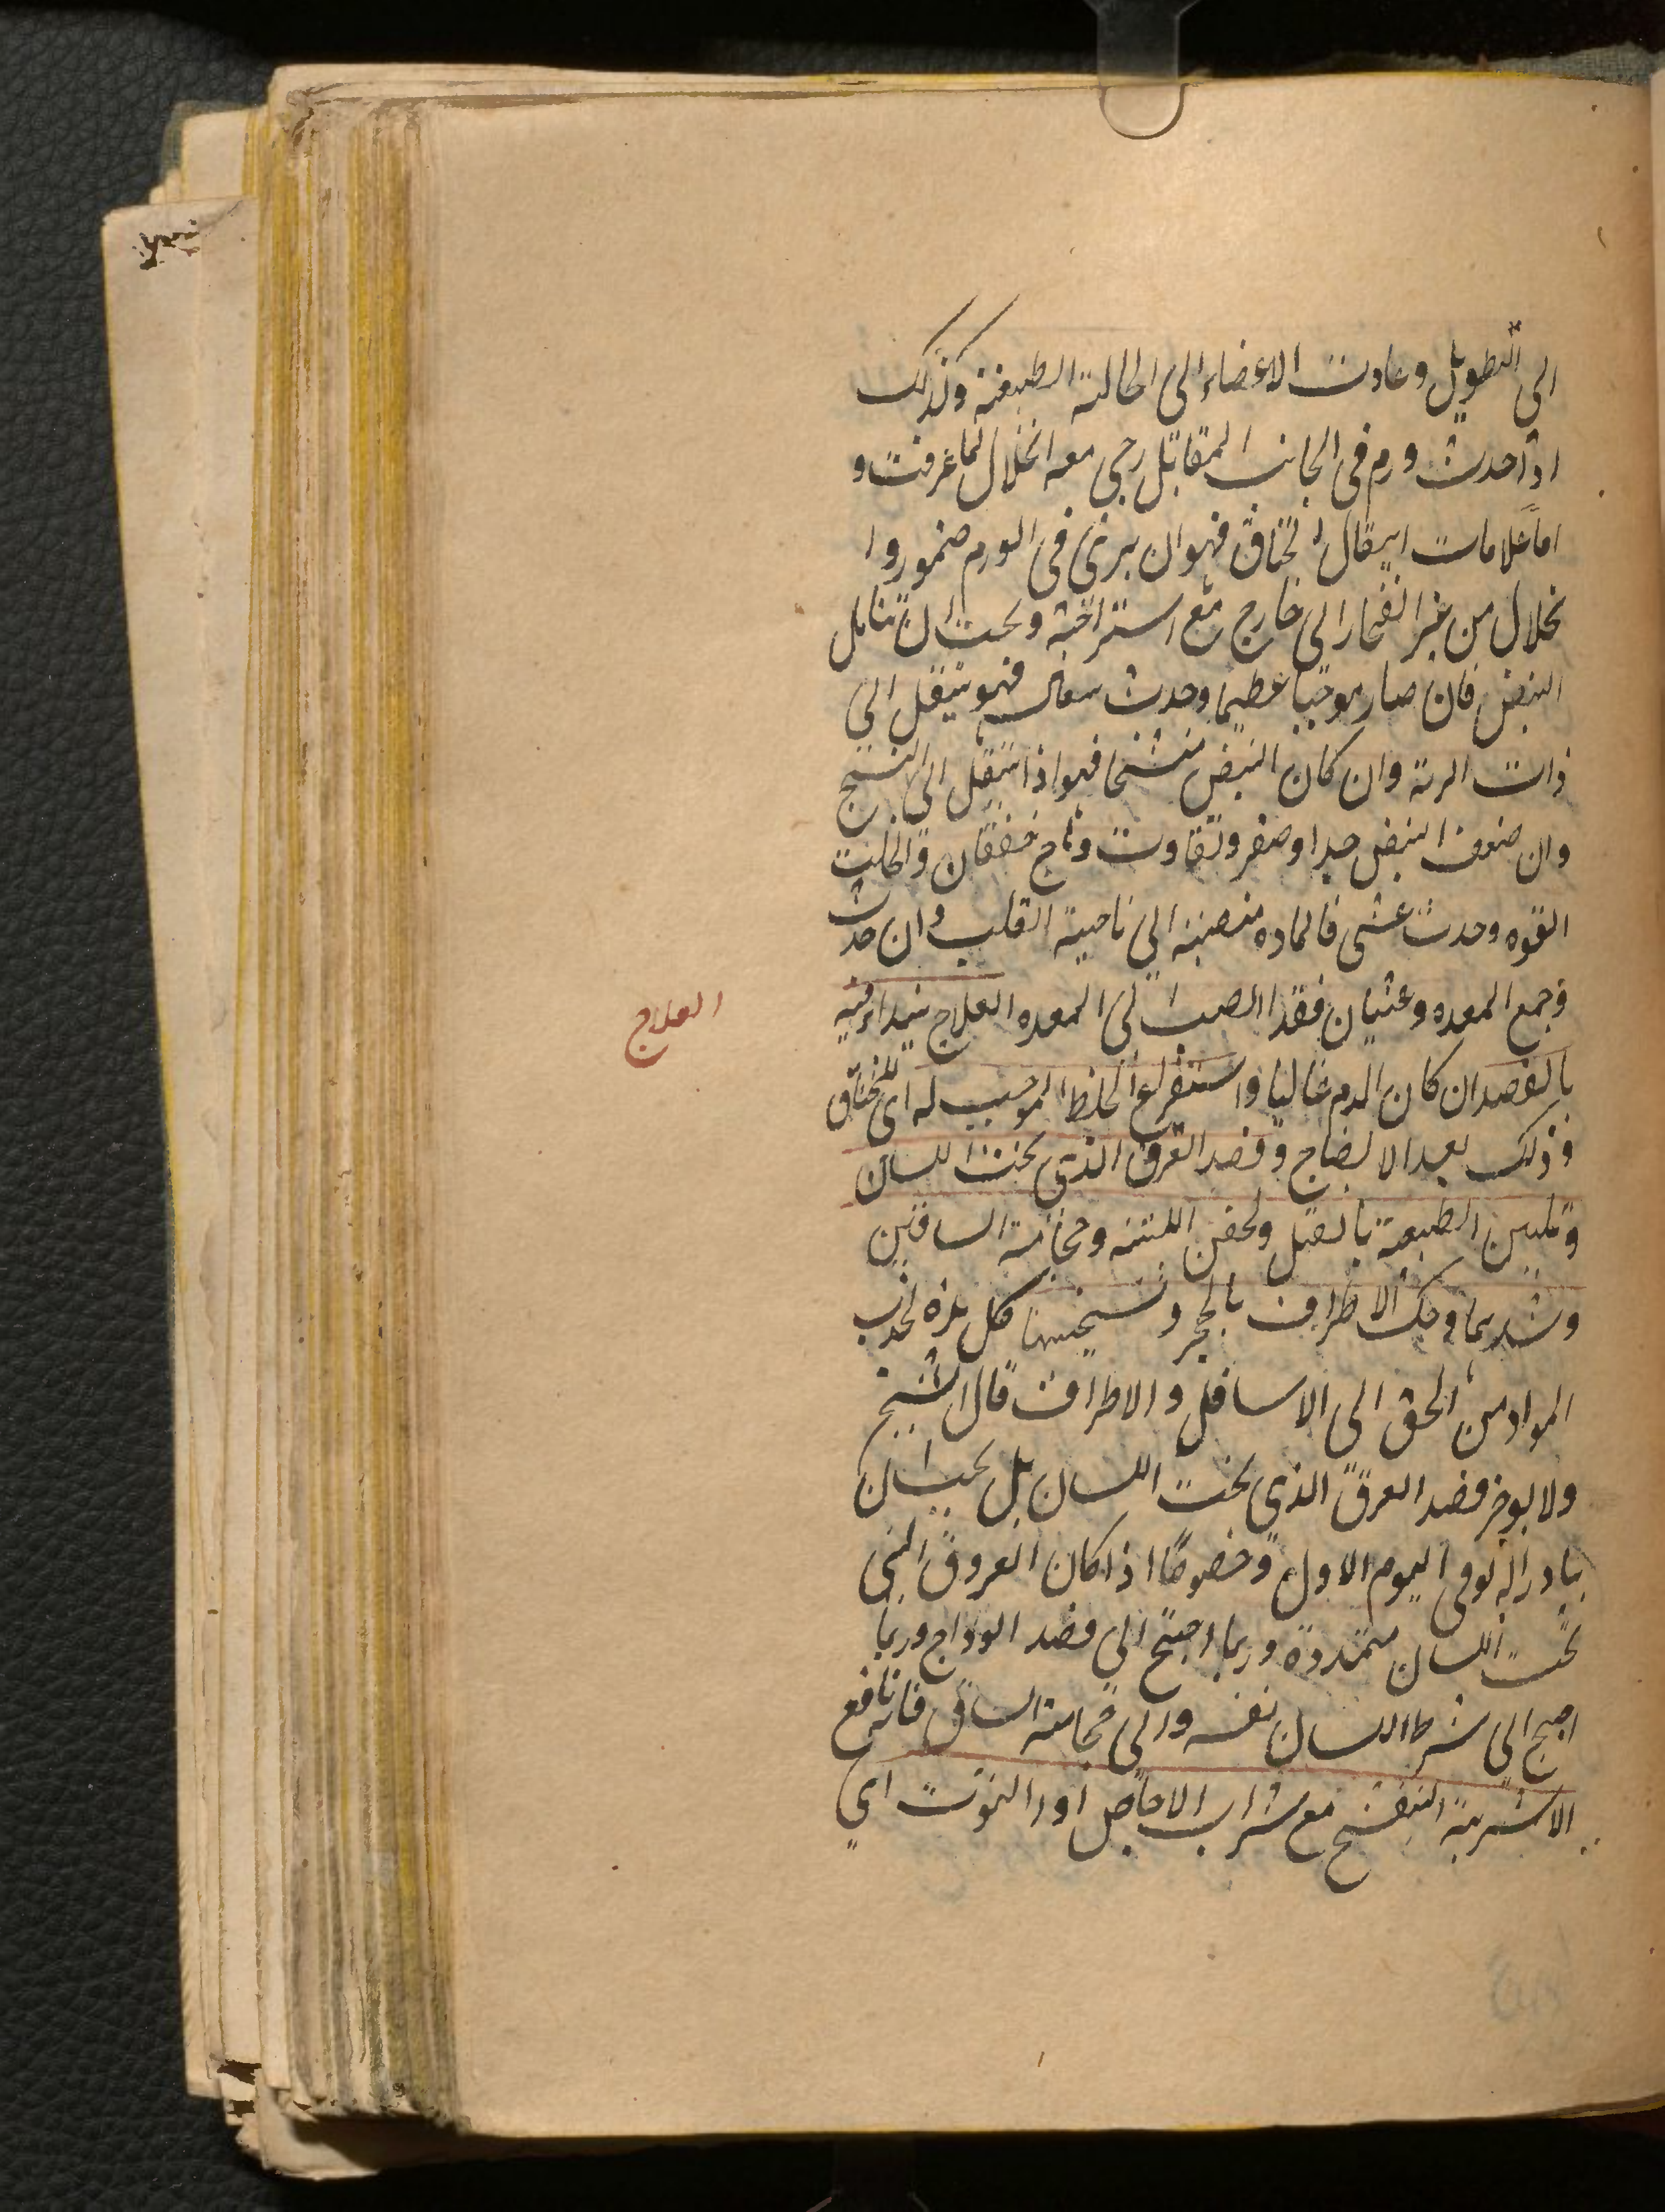 الى التطويل وعادت الاعضاء الى الحالة الطبيعية وكذلك
اذا حدث ورم فى الجانب المقابل رجى معه انحلال لما عرفت و
اما علامات انتقال الخناق فهو ان يرى فى الورم ضمور وا
نحلال من غير انفجار الى خارج مع استراحة ويجب ان تتامل
النبض فان صار موجيا عظيما وحدث سعال فهو ينتقل الى
ذات الرية وان كان النبض متشنجا فهو اذا ينتقل الى التشنج
وان ضعف النبض جدا وصغر وتفاوت وهاج خفقان وانحلت
القوه وحدث غشى فالماده منصبة الى ناحية القلب وان حدث
وجع المعده وغثيان فقد انصب الى المعده العلاج يبتداء فيه
العلاج
بالفصد ان كان الدم غالبا واستفراغ الخلط الموجب له اى للخناق
وذلك بعد الانضاج وفصد العرق الذى تحت اللسان
وتليين الطبيعة بالفتل والحقن اللينة وحجامة الساقين
وشدهما وحك الاطراف بالحجر وتسخينها فكل هذه تجذب
المواد من الحلق الى الاسافل والاطراف قال الشيخ
ولا يوخر فصد العرق الذى تحت اللسان بل يجب ان
يبادر اليه فى اليوم الاول وخصوصا اذا كان العروق التى
تحت اللسان متمددة وربما احتيج الى فصد الوداج وربما
احتيج الى شرط اللسان نفسه والى حجامة الساق فانه نافع
الاشربة البنفسج مع شراب الاجاص او التوت اى